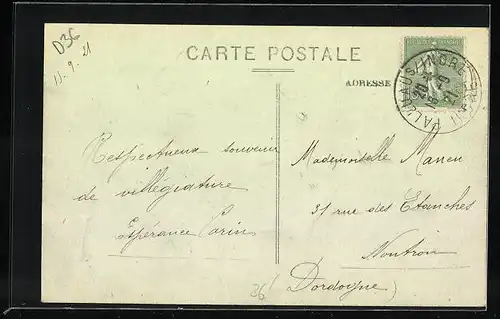 D36
11-9-21
CARTE POSTALE
ADRESSE
PALLUAU S/INDRE
20 *
15-9
21
INDRE
Respectueux souvenir
de villégiature
Espérance Corin
Mademoiselle Maneu
31 rue des Etanches
Nontron
(Dordogne)
36